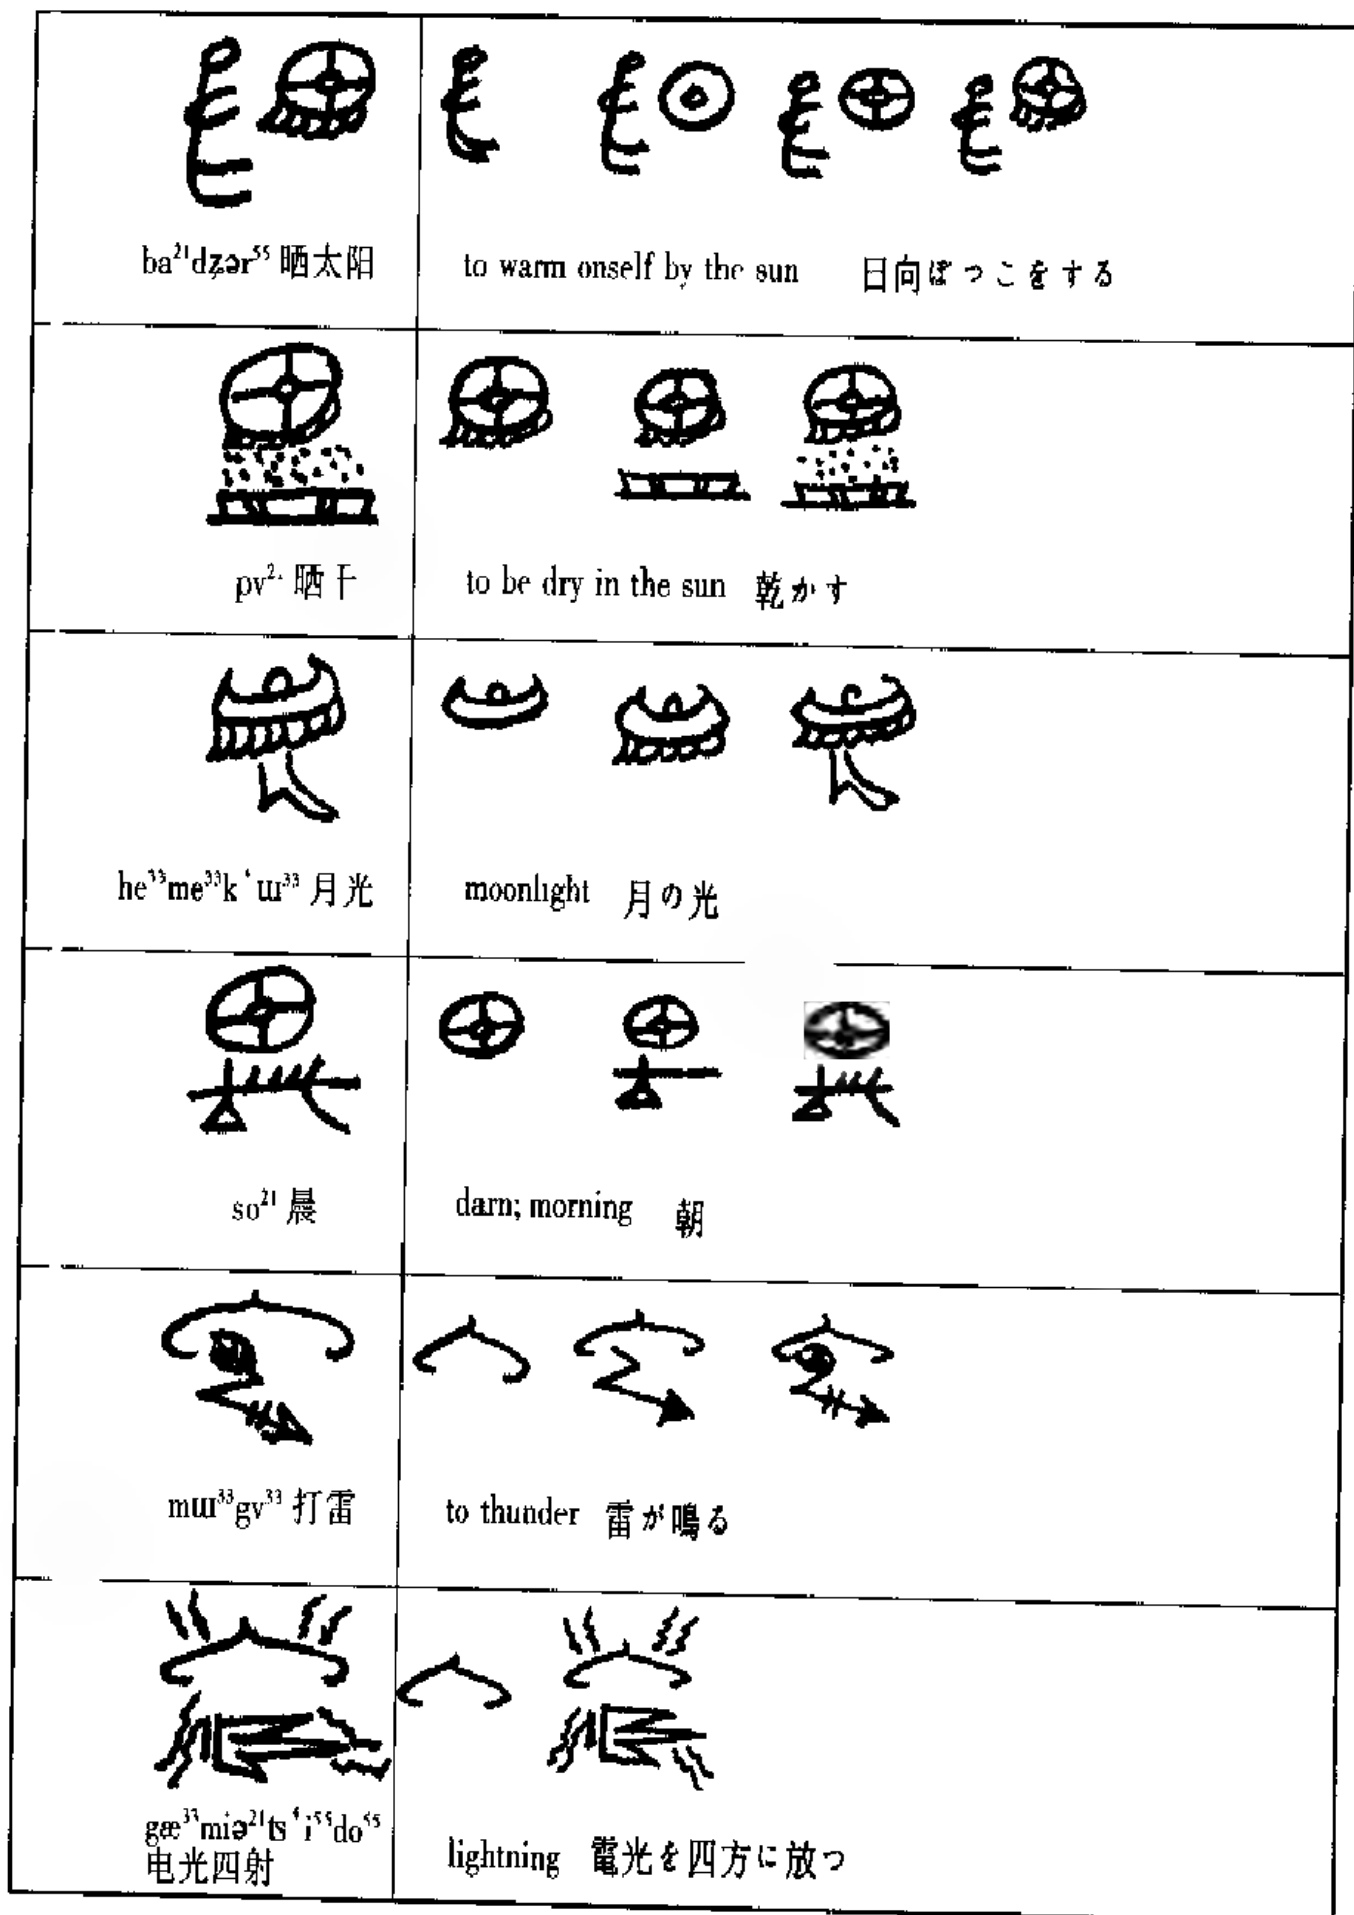 ba²¹dʐər⁵⁵ 晒太阳
to warm onself by the sun 日向ぼっこをする
pv²· 晒干
to be dry in the sun 乾かす
he³³me³³k‘ɯ³³ 月光
moonlight 月の光
so²¹ 晨
darn; morning 朝
mɯ³³gv³³ 打雷
to thunder 雷が鳴る
gæ³³miə²¹ts‘i⁵⁵do⁵⁵
电光四射
lightning 電光を四方に放つ